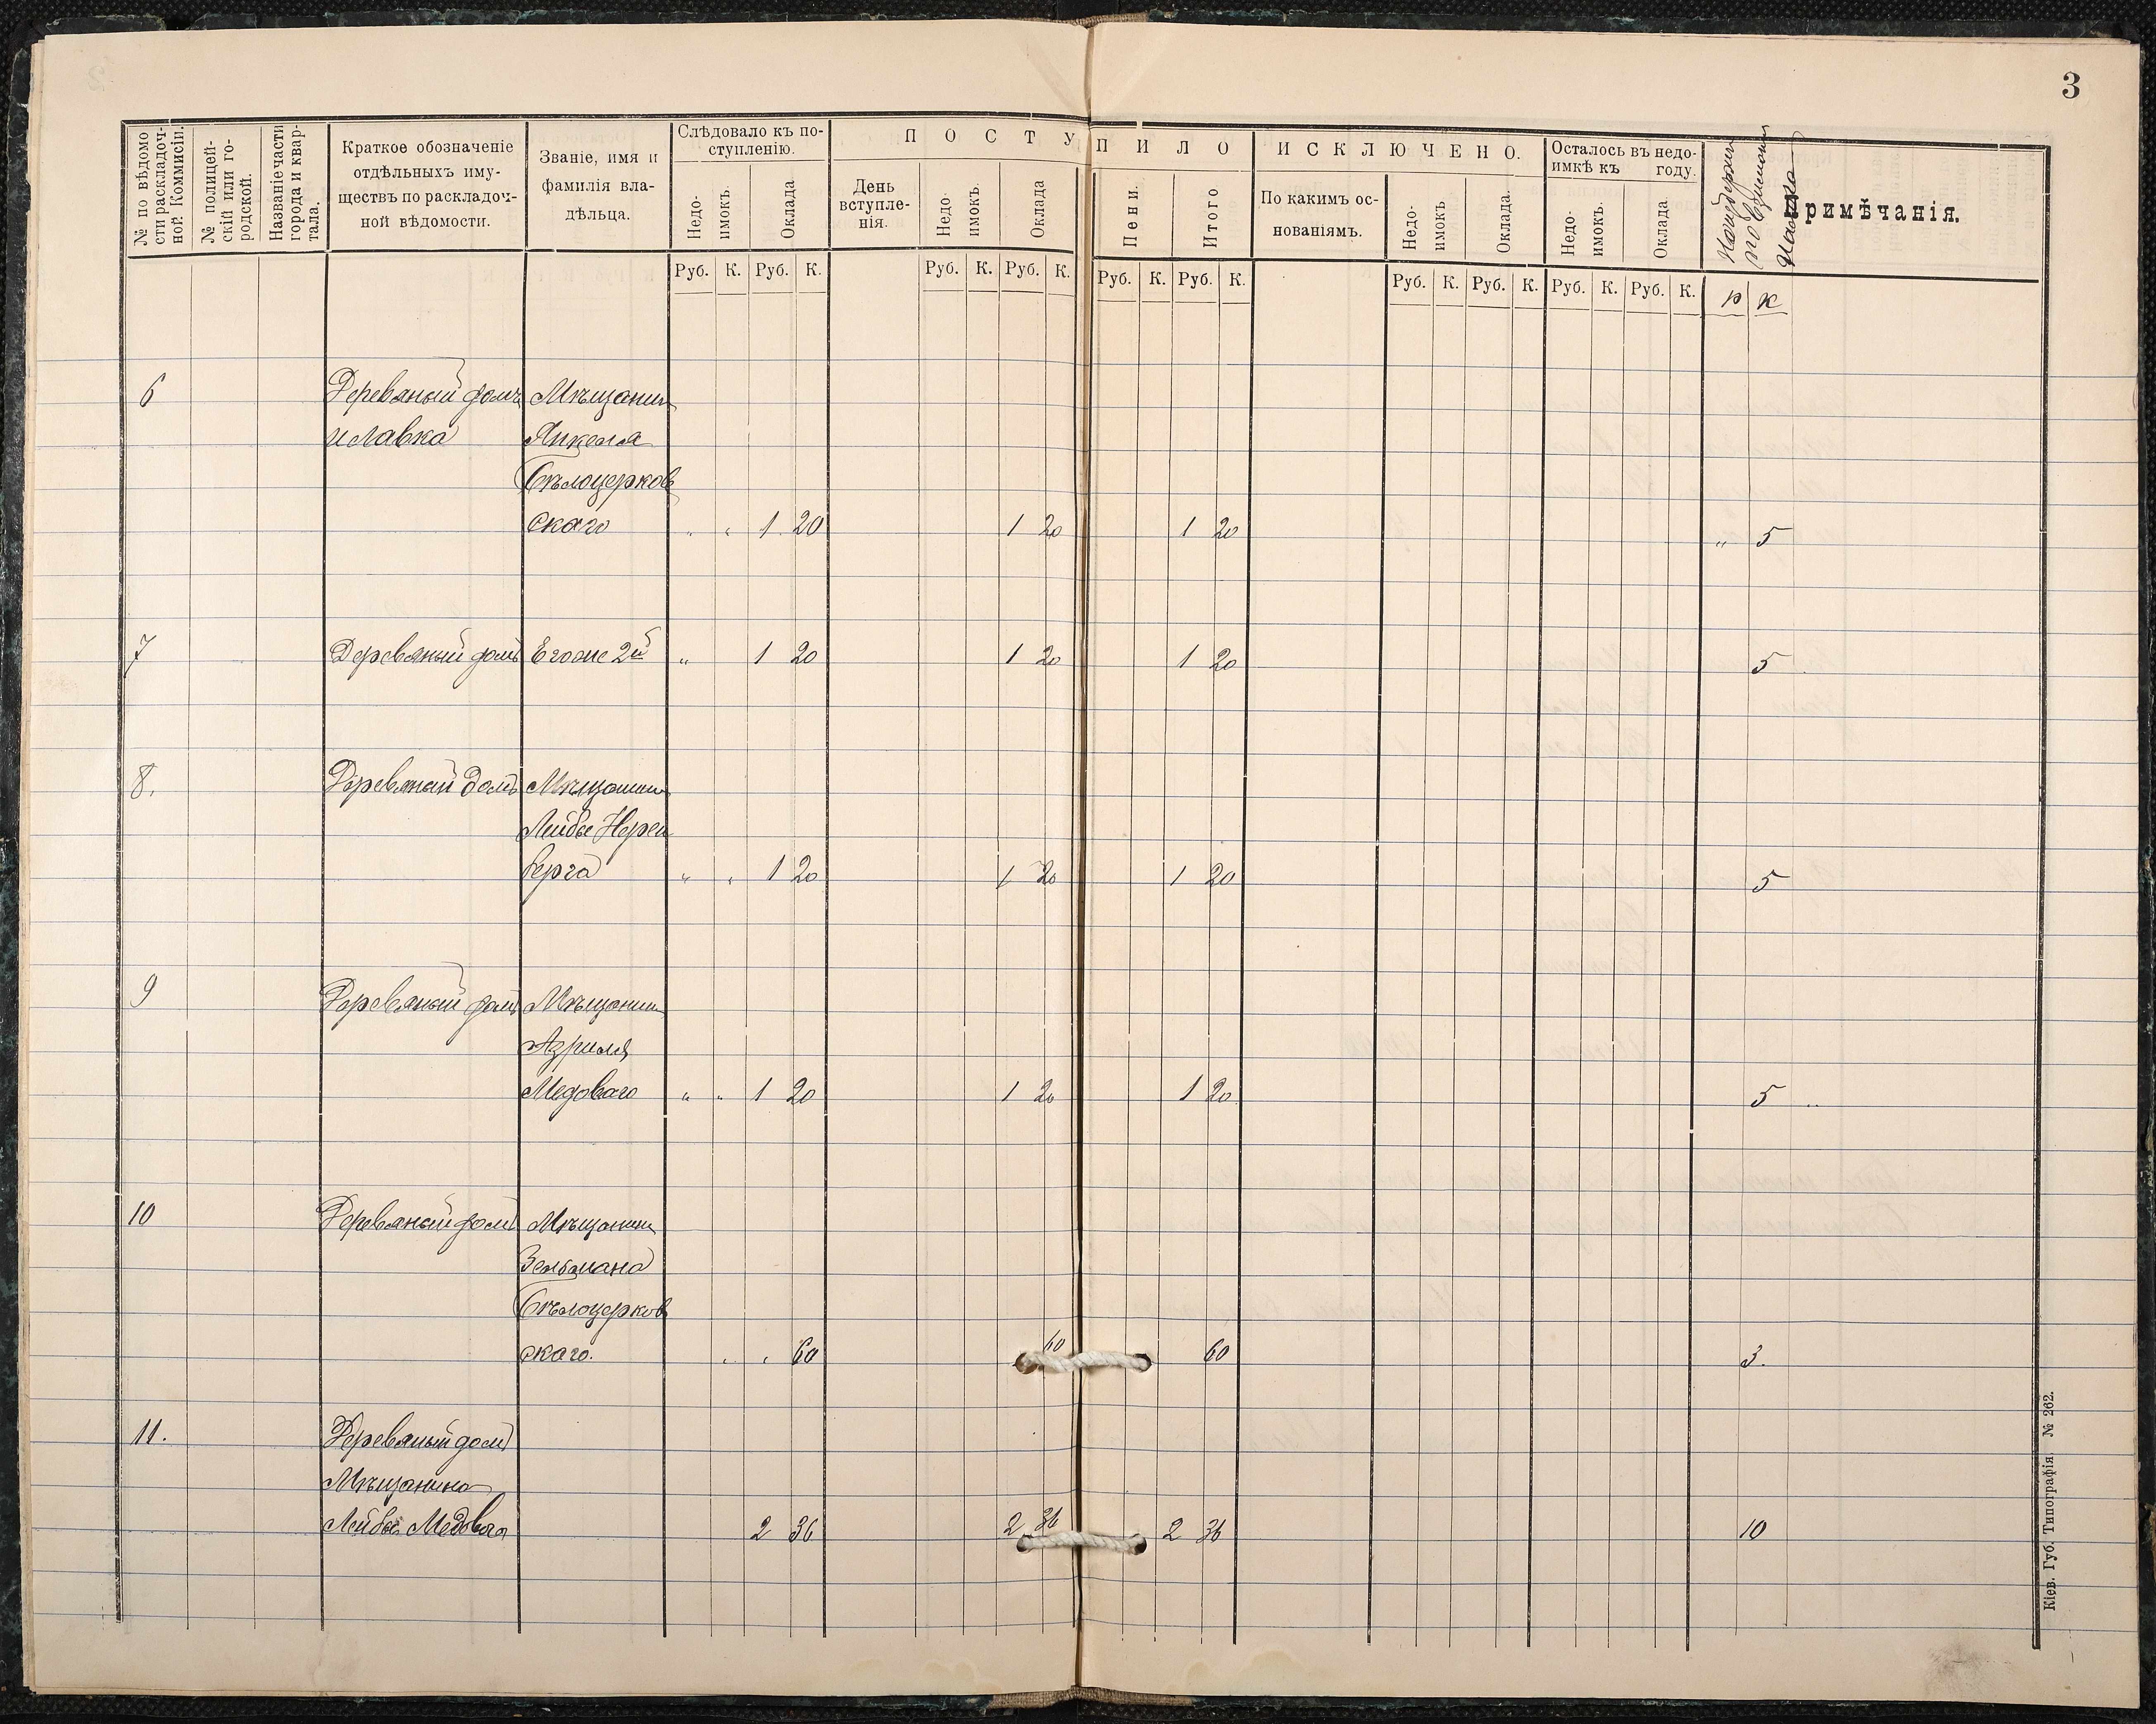 3
№ по вѣдомо
сти раскладоч-
ной. Коммисіи.
№ полицей-
скій или го-
родской.
Названіе части
города и квар-
тала.
Краткое обозначеніе
отдѣльныхъ иму-
ществъ по раскладоч-
ной вѣдомости.
Званіе, имя и
фамилія вла-
дѣльца.
Слѣдовало къ по-
ступленію.
Недо-
имокъ.
Оклада
ПОСТУ
День
вступле-
нія.
Недо-
имокъ.
Оклада
ПИЛО
Пени.
Итого
ИСКЛЮЧЕНО.
По какимъ ос-
нованіямъ.
Недо-
имокъ
Оклада.
Осталось въ недо-
имкѣ къ году.
Недо-
имокъ.
Оклада
Примѣчанія.
Руб. К. Руб. К. Руб. К. Руб. К. Руб. К. Руб. К. Руб. К. Руб. К. Руб. К. Руб. К. р к
6 Деревяный домъ Мѣщанин
и лавка Янкеля
Бѣлоцерков
скаго " " 1 20 1 20 1 20 " 5
7 Деревяный домъ Его же 2й " 1 20 1 20 1 20 5
8. Деревяный домъ Мѣщанин
Лейбы
берга " " 1 20 1 20 1 20 5
9 Деревяный домъ Мѣщанин
Азриля
Медоваго " " 1 20 1 20 1 20 5
10 Деревяный домъ Мѣщанин
Зельмана
Бѣлоцерков
скаго. " " 60 60 60 3.
11. Деревяный домъ
Мѣщанина
Лейбы Медоваго 2 36 2 36 2 36 10
Кіев. Губ. Типографія № 262.